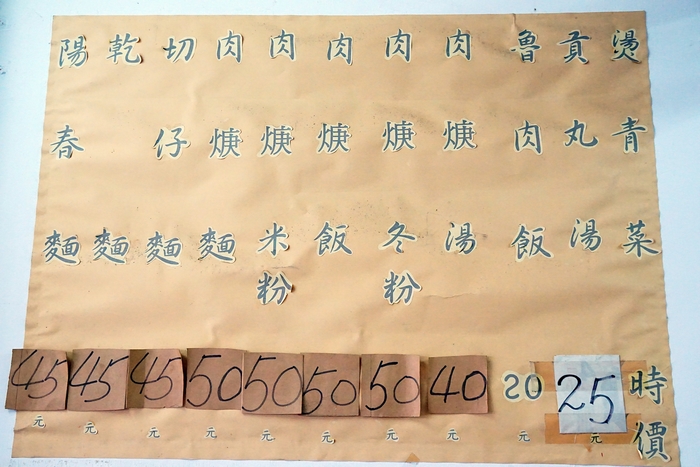 燙青菜時價
貢丸湯25元
魯肉飯20元
肉焿湯40元
肉焿冬粉50元
肉焿飯50元
肉焿米粉50元
肉焿麵50元
切仔麵45元
乾麵45元
陽春麵45元